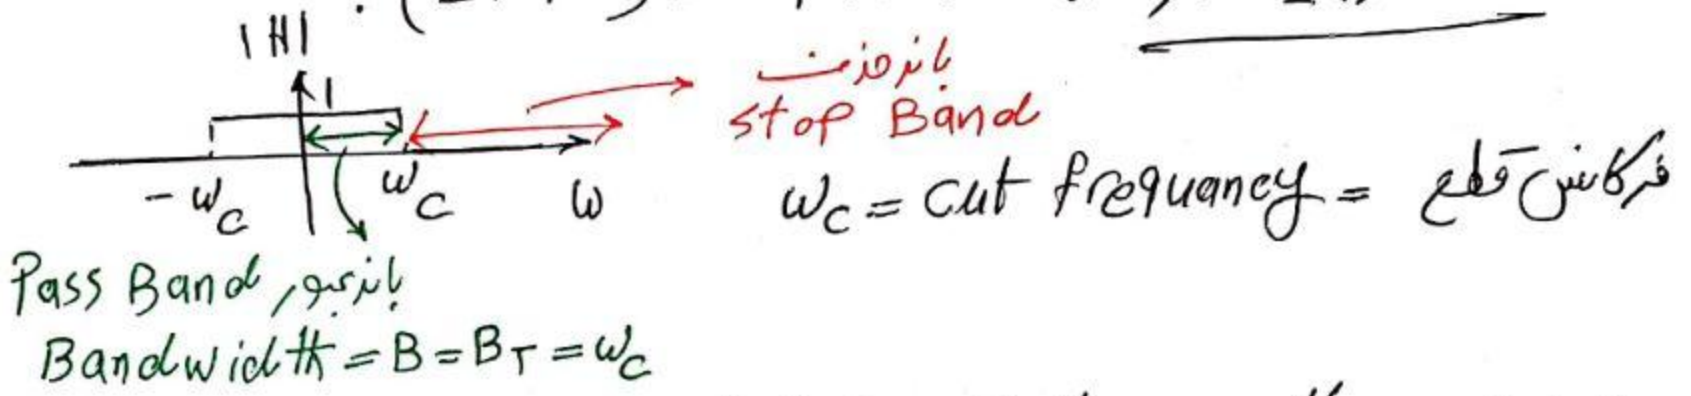 |H|
1
باند حذف
stop Band
-ωc
ωc
ω
ωc = cut frequancy = فرکانس قطع
Pass Band باند عبور
Bandwidth = B = BT = ωc